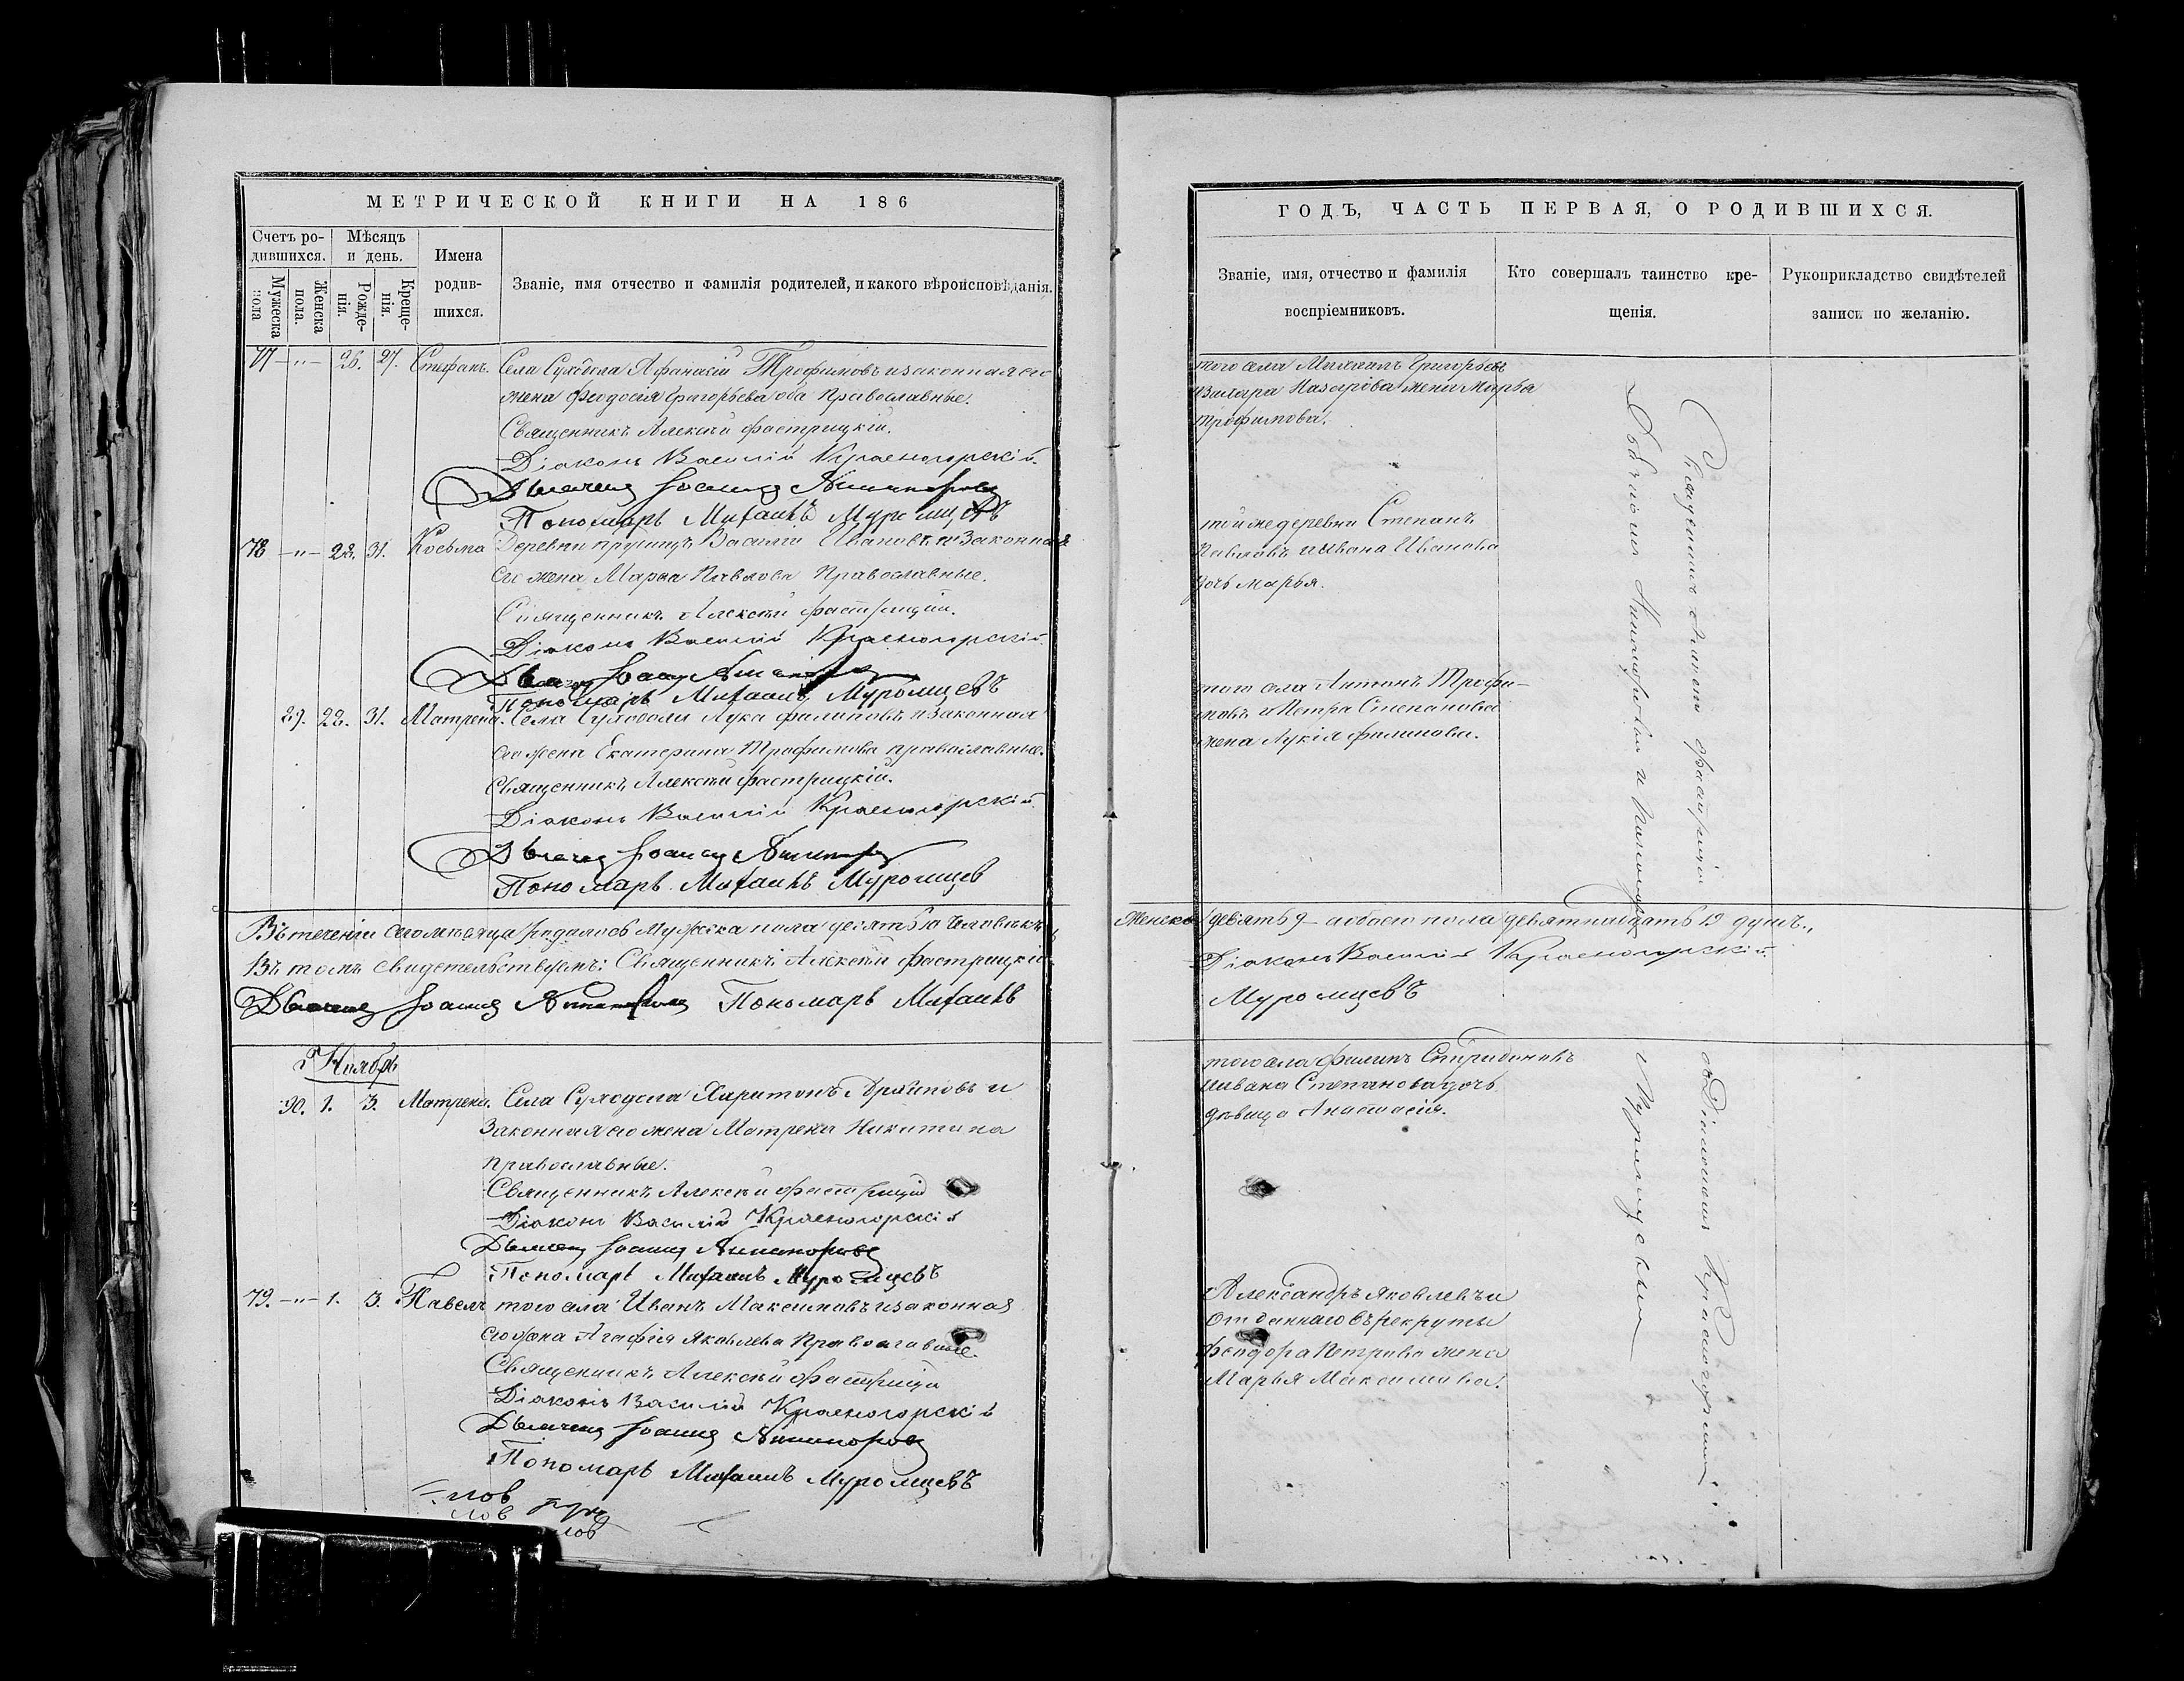 МЕТРИЧЕСКОЙ КНИГИ НА 186
Счетъ родившихся.
Мѣсяцъ и день.
Имена родившихся.
Званіе, имя отчество и фамилія родителей, и какого вѣроисповѣданія.
Мужеска пола
Женска пола.
Рожденія.
Крещенія.
77 - " - 26. 27. Стефанъ. Села Суходола Афанасій Трофимовъ и законная его
жена Феодосія Григорьева оба Православные.
Священникъ Алексѣй Фастрицкій.
Діаконъ Василій Красногорскій.
Дьячекъ Іоаннъ
Пономарь Михаилъ Муромцевъ
78 - " - 28. 31. Косьма Деревни Василій Ивановъ и законная
его жена Марѳа Павлова Православные.
Священникъ Алексѣй Фастрицкій.
Діаконъ Василій Красногорскій.
Дьячекъ Іоаннъ
Пономарь Михаилъ Муромцевъ
28. 31. Матрена. Села Суходола Лука Филиповъ и законная
его жена Екатерина Трофимова православные.
Священникъ Алексѣй Фастрицкій.
Діаконъ Василій Красногорскій.
Дьячекъ Іоаннъ
Пономарь Михаилъ Муромцев
Въ теченіи сего мѣсяца родилось мужеска пола десять 10 человѣкъ,
Въ томъ свидетельствуемъ: Священникъ Алексѣй Фастрицкій
Дьячекъ Іоаннъ Пономарь Михаилъ
Ноябрь
90. 1. 3. Матрена. Села Суходола Харитонъ и
Законная его жена Матрена Никитина
православные.
Священникъ Алексѣй Фастрицкій
Діаконъ Василій Красногорскій
Дьячекъ Іоаннъ
Пономарь Михаилъ Муромцевъ
79. - " - 1. 3. Павелъ того села Иванъ Максимовъ и законная
его жена Агафія Яковлева Православные.
Священникъ Алексѣй Фастрицкій
Діаконъ Василій Красногорскій
Дьячекъ Іоаннъ
Пономарь Михаилъ Муромцевъ
ГОДЪ, ЧАСТЬ ПЕРВАЯ, О РОДИВШИХСЯ.
Званіе, имя, отчество и фамилія воспріемниковъ.
Кто совершалъ таинство крещенія.
Рукоприкладство свидѣтелей записи по желанію.
того села Михаилъ Григорьевъ
Назарова жена Марѳа
Трофимова.
той же деревни Степанъ
Павловъ и Ивана Иванова
дочь Марья.
того села Антонъ Трофимовъ
и Петра Степанова
жена Лукія Филипова.
Священникъ Алексѣй Фастрицкій
женска девять 9 - а обоего пола девятнадцать 19 душъ.,
Діаконъ Василій Красногорскій.
Муромцевъ
того села Филипъ Спиридоновъ
и Ивана Степанова дочь
дѣвица Анастасія.
Александръ Яковлевъ и
отданнаго въ рекруты
Феодора Петрова жена
Марья Максимова.
съ Діакономъ Красногорскимъ